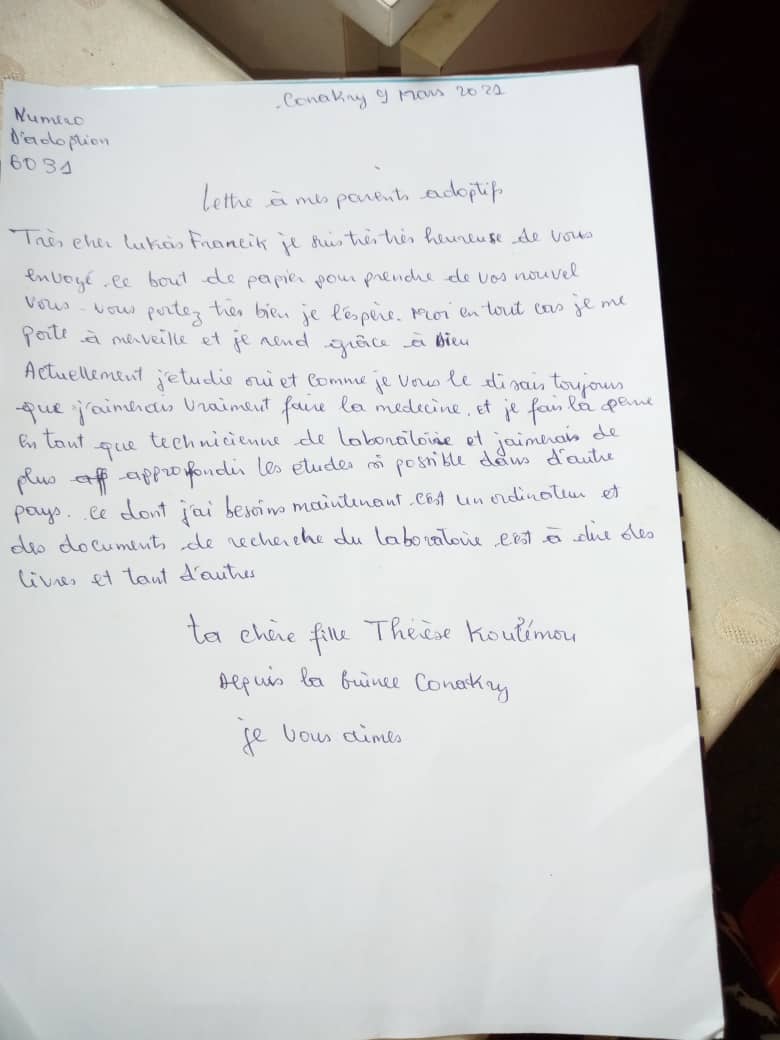 Conakry 9 Mars 2021
Numero
D'adoption
6031
Lettre à mes parents adoptifs
Très cher Lukás Francik je suis très très heureuse de vous
envoyé ce bout de papier pour prendre de vos nouvel
vous vous portez très bien je l'espère. Moi en tout cas je me
porte à merveille et je rend grâce à Dieu
Actuellement j'etudie oui et comme je vous le disais toujours
que j'aimerais vraiment faire la medecine, et je fais la
en tant que technicienne de laboratoire et j'aimerais de
plus aff approfondir les etudes si possible dans d'autre
pays. ce dont j'ai besoins maintenant c'est un ordinateur et
des documents de recherche du laboratoire c'est à dire des
livres et tant d'autres
ta chère fille Thérèse Koulémou
Depuis la Guinée Conakry
je vous aimes